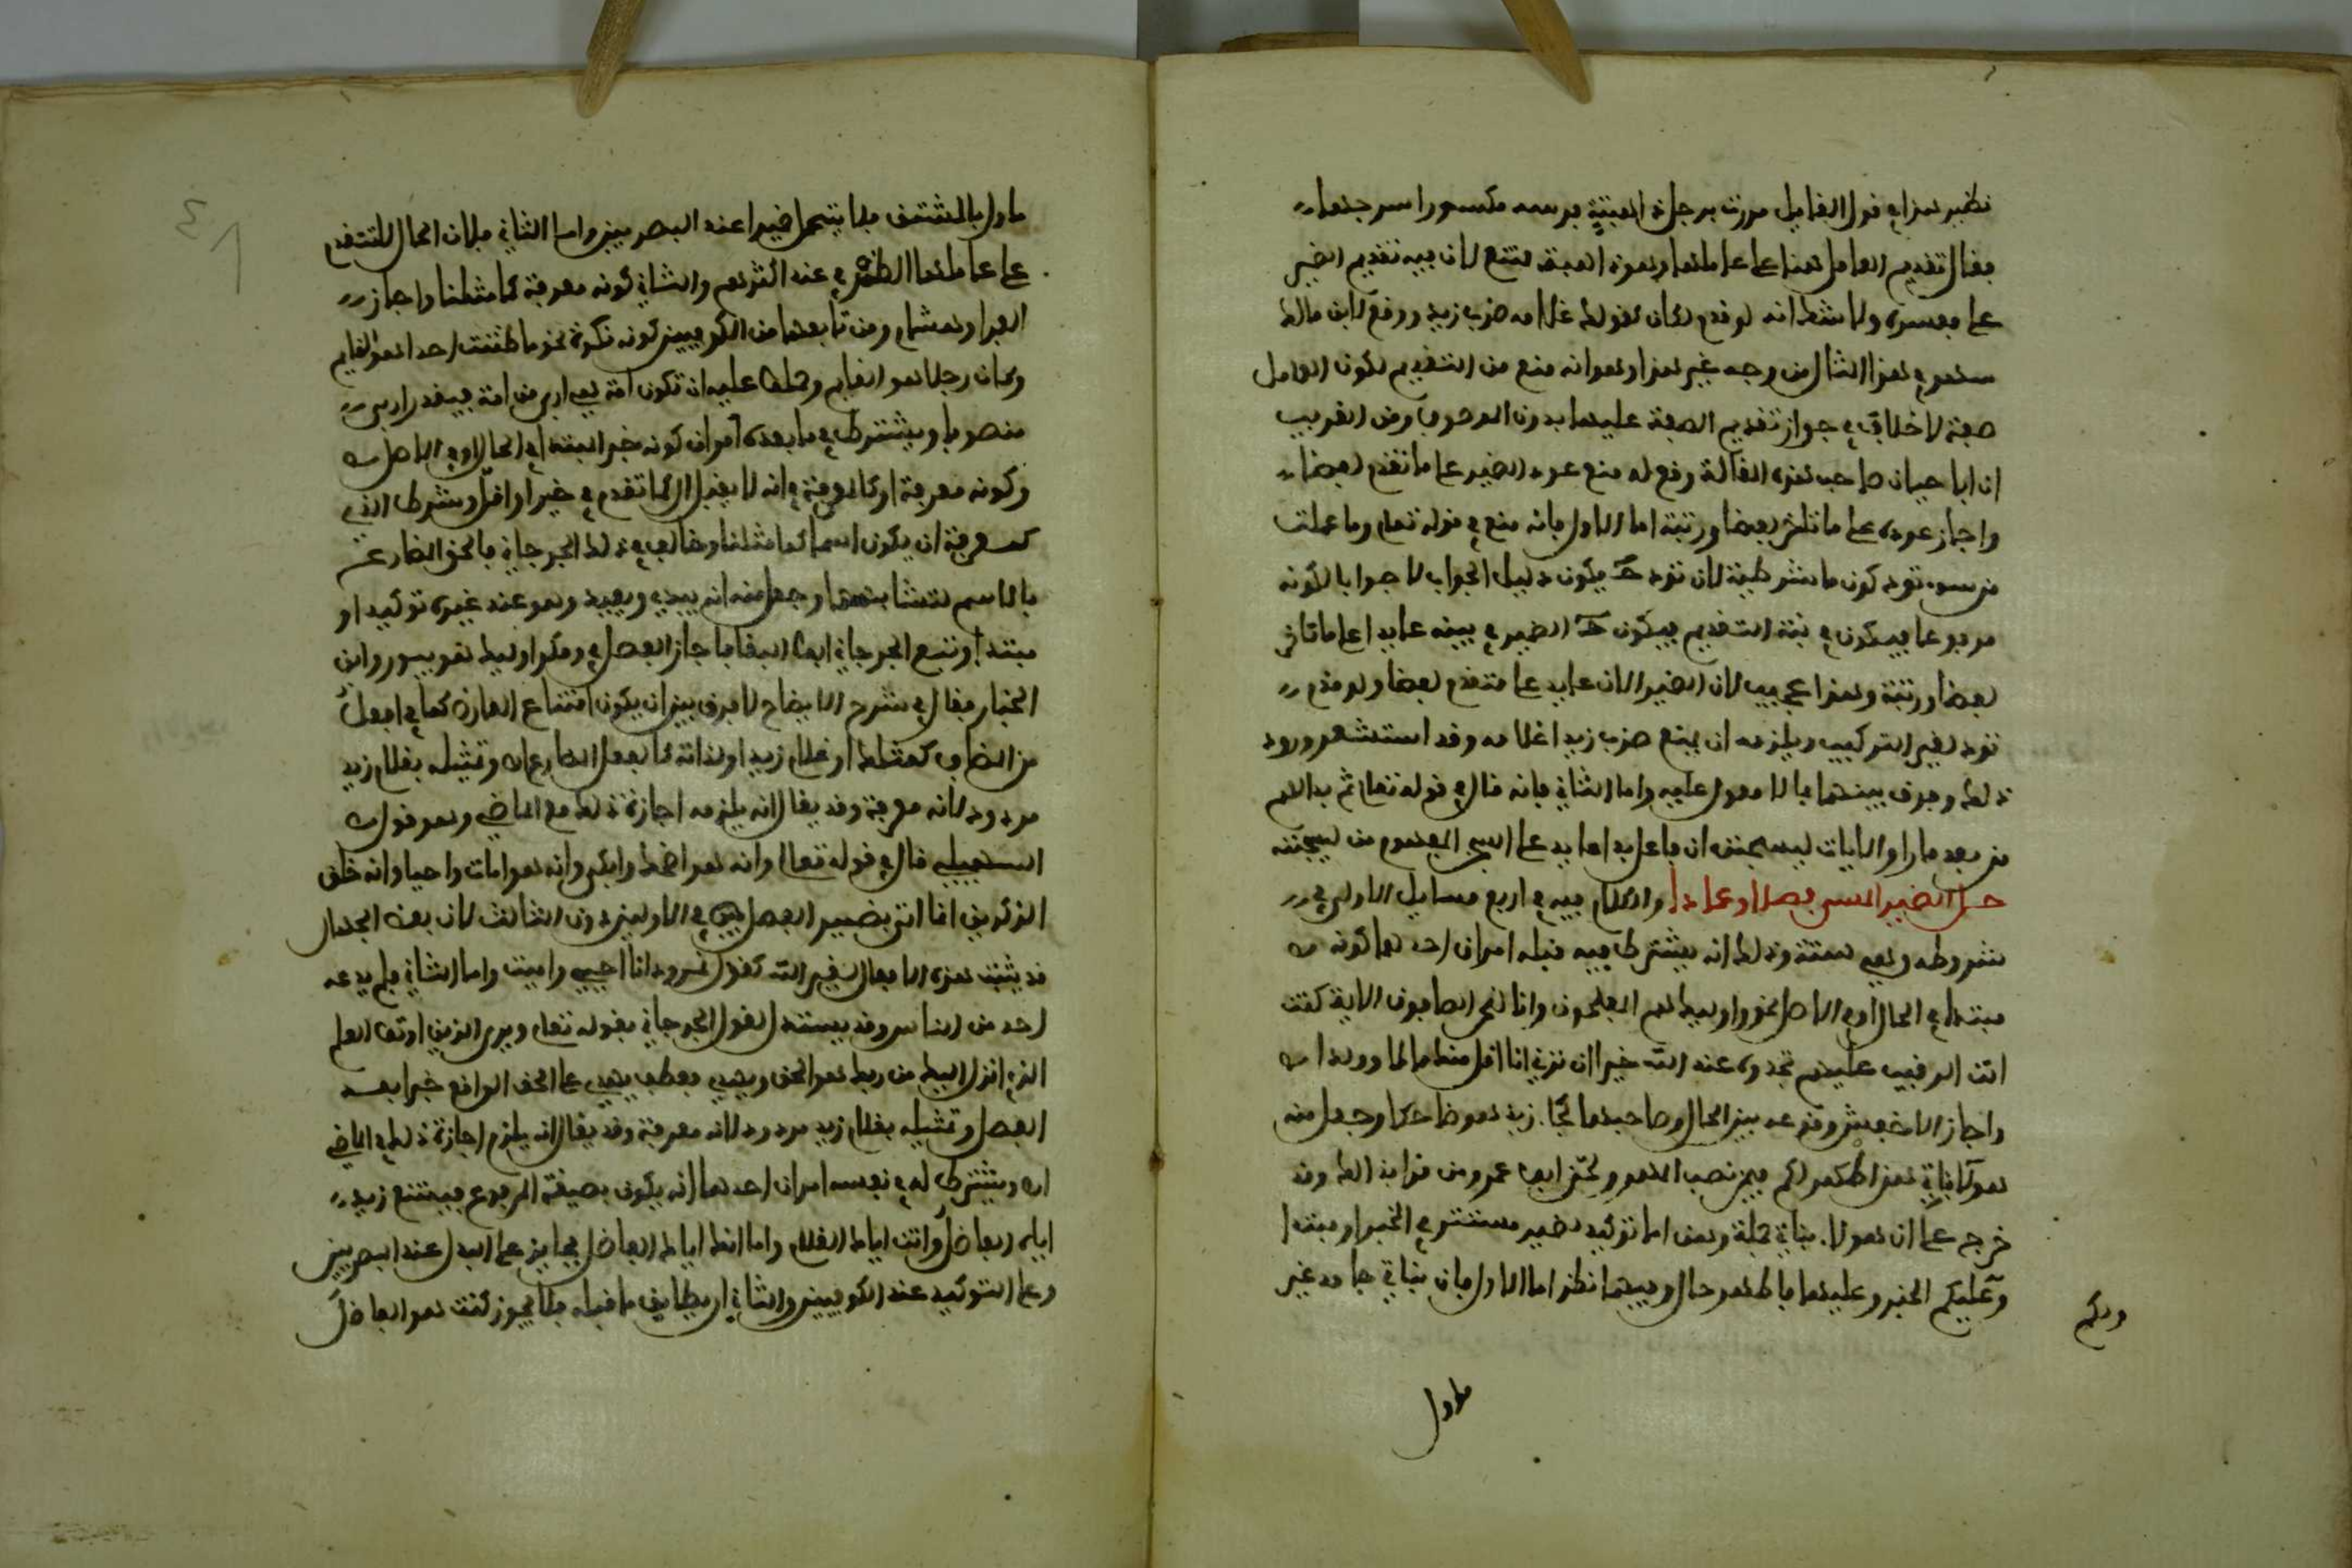 نظير هذا في قول القايل مررت برجل ذاهبة فرسه مكسورا سرجها
فقال تقديم الحال هنا على عاملها وهو ذاهبة ممتنع لان فيه تقديم الضمير
على مفسره ولا شك انه لو قدم لكان كقولك غلامه ضرب زيد ووقع لابن مالك
سهو في هذا المثال من وجه غير هذا وهو انه منع من التقديم لكون العامل
صفة لا خلاف في جواز تقديم الصفة عليها بدون الموصوف ومن الغريب
ان ابا حيان صاحب هذه المقالة وقع له منع عود الضمير على ما تقدم لفظا
واجاز عوده على ما تاخر لفظا ورتبة اما الاول فانه منع في قوله تعلى وما عملت
من سوء تود كون ما شرطية لان تود ح يكون دليل الجواب لا جوابا لكونه
مرفوعا فيكون في نية التقديم فيكون ح الضمير في بينه عايدا على ما تاخر
لفظا ورتبة وهذا عجيب لان الضمير الان عايد على متقدم لفظا ولو قدم
تود لغير التركيب ويلزمه ان يمنع ضرب زيدا غلامه وقد استشعر ورود
ذلك وفرق بينهما بما لا معول عليه واما الثاني فانه قال في قوله تعلى ثم بدا لهم
من بعد ما راوا الايات ليسجننه ان فاعل بدا عايد على السجن المفهوم من ليسجننه
حـل الضمير المسمى فصلا وعمادا والكلام فيه في اربع مسايل الاولى في
شروطه وهي ستة وذلك انه يشترط فيه قبله امران احدهما كونه
مبتدا في الحال او في الاصل نحو واوليك هم المفلحون وانا لنحن الصافون الاية كنت
انت الرقيب عليهم تجدوه عند الله خيرا ان ترني انا اقل منك مالا وولدا
واجاز الاخفش وقوعه بين الحال وصاحبها كجا زيد هو ضاحكا وجعل منه
هولا بناتي هن اطهر لكم فيمن نصب اطهر ولحن ابو عمرو من قرا بذلك وقد
خرج على ان هولا بناتي جملة وهن اما توكيد لضمير مستتر في الخبر او مبتدا
ولكم الخبر وعليهما فاطهر حال وفيهما نظر اما الاول فان بناتي جامد غير
ولكم
ماول
ماول بالمشتق فلا يتحمل ضميرا عند البصريين واما الثاني فلان الحال لا تتقدم
على عاملها الظرفي عند اكثرهم والثاني كونه معرفة كما مثلنا واجاز
الفرا وهشام ومن تابعهما من الكوفيين كونه نكرة نحو ما ظننت احدا هو القايم
وكان رجلا هو القايم وحملا عليه ان تكون امة هي اربى من امة فيقدر اربى
منصوبا ويشترط في ما بعده امران كونه خبرا لمبتدا في الحال او في الاصل
وكونه معرفة او كالمعرفة في انه لا يقبل ال كما تقدم في خيرا واقل وشرط الذي
كالمعرفة ان يكون اسما كما مثلنا وخالف في ذلك الجرجاني فالحق المضارع
بالاسم لتشابههما وجعل منه انه هو يبدي ويعيد وهو عند غيره توكيد او
مبتدا وتبع الجرجاني ابو البقا فاجاز الفصل في ومكر اوليك هو يبور وابن
الخباز فقال في شرح الايضاح لا فرق بين ان يكون امتناع العارض كما في افعل
من المضاف كمثلك او غلام زيد او لذاته كالفعل المضارع اه وتمثيله بغلام زيد
مردود لانه معرفة وقد يقال انه يلزمه اجازة ذلك مع الماضي وهو قول
السهيلي قال في قوله تعالى وانه هو اضحك وابكى وانه هو امات واحيا وانه خلق
الزوجين انما اتى بضمير الفصل في الاولين دون الثالث لان بعض الجهال
قد يثبت هذه الافعال لغير الله كقول نمرود انا احيي واميت واما الثالث فلم يدعه
احد من الناس وقد يستدل لقول الجرجاني بقوله تعلى ويرى الذين اوتوا العلم
الذي انزل اليك من ربك هو الحق ويهدي فعطف يهدي على الحق الواقع خبرا بعد
الفصل وتمثيله بغلام زيد مردود لانه معرفة وقد يقال انه يلزم اجازة ذلك في الماضي
اه ويشترط له في نفسه امران احدهما ان يكون بصيغة المرفوع فيمتنع زيد
اياه الفاضل وانت اياك الغلام واما انك اياك الفاضل فجايز على البدل عند البصريين
وعلى التوكيد عند الكوفيين والثاني ان يطابق ما قبله فلا يجوز كنت هو الفاضل